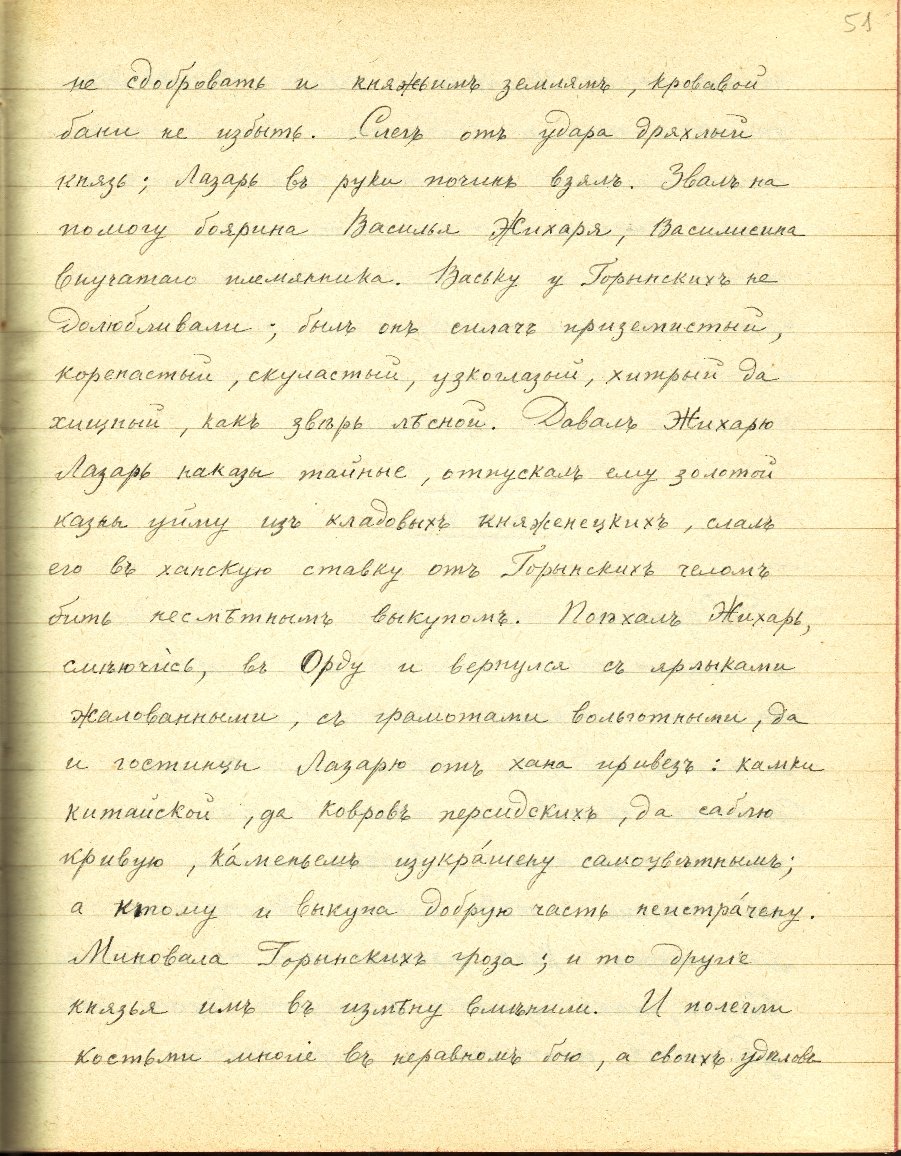 51
не сдобровать и княжьимъ землямъ, кровавой
бани не избыть. Слегъ отъ удара дряхлый
князь; Лазарь въ руки починъ взялъ. Звалъ на
помогу боярина Василья Жихаря, Василисина
внучатаго племянника. Ваську у Горынскихъ не
долюбливали; былъ онъ силачъ приземистый,
коренастый, скуластый, узкоглазый, хитрый да
хищный, какъ звѣрь лѣсной. Давалъ Жихарю
Лазарь наказы тайные, отпускалъ ему золотой
казны уйму изъ кладовыхъ княженецкихъ, слалъ
его въ ханскую ставку отъ Горынскихъ челомъ
бить несмѣтнымъ выкупомъ. Поѣхалъ Жихарь,
смѣючи́сь, въ Орду и вернулся съ ярлыками
жалованными, съ грамотами вольготными, да
и гостинцы Лазарю отъ хана привезъ: камки
китайской, да ковровъ персидскихъ, да саблю
кривую, ка́меньемъ изукра́шену самоцвѣтнымъ;
а ктому и выкупа добрую часть неистра́чену.
Миновала Горынскихъ гроза; и то другіе
князья имъ въ измѣну вмѣнили. И полегли
костьми многіе въ неравномъ бою, а своихъ удѣловъ